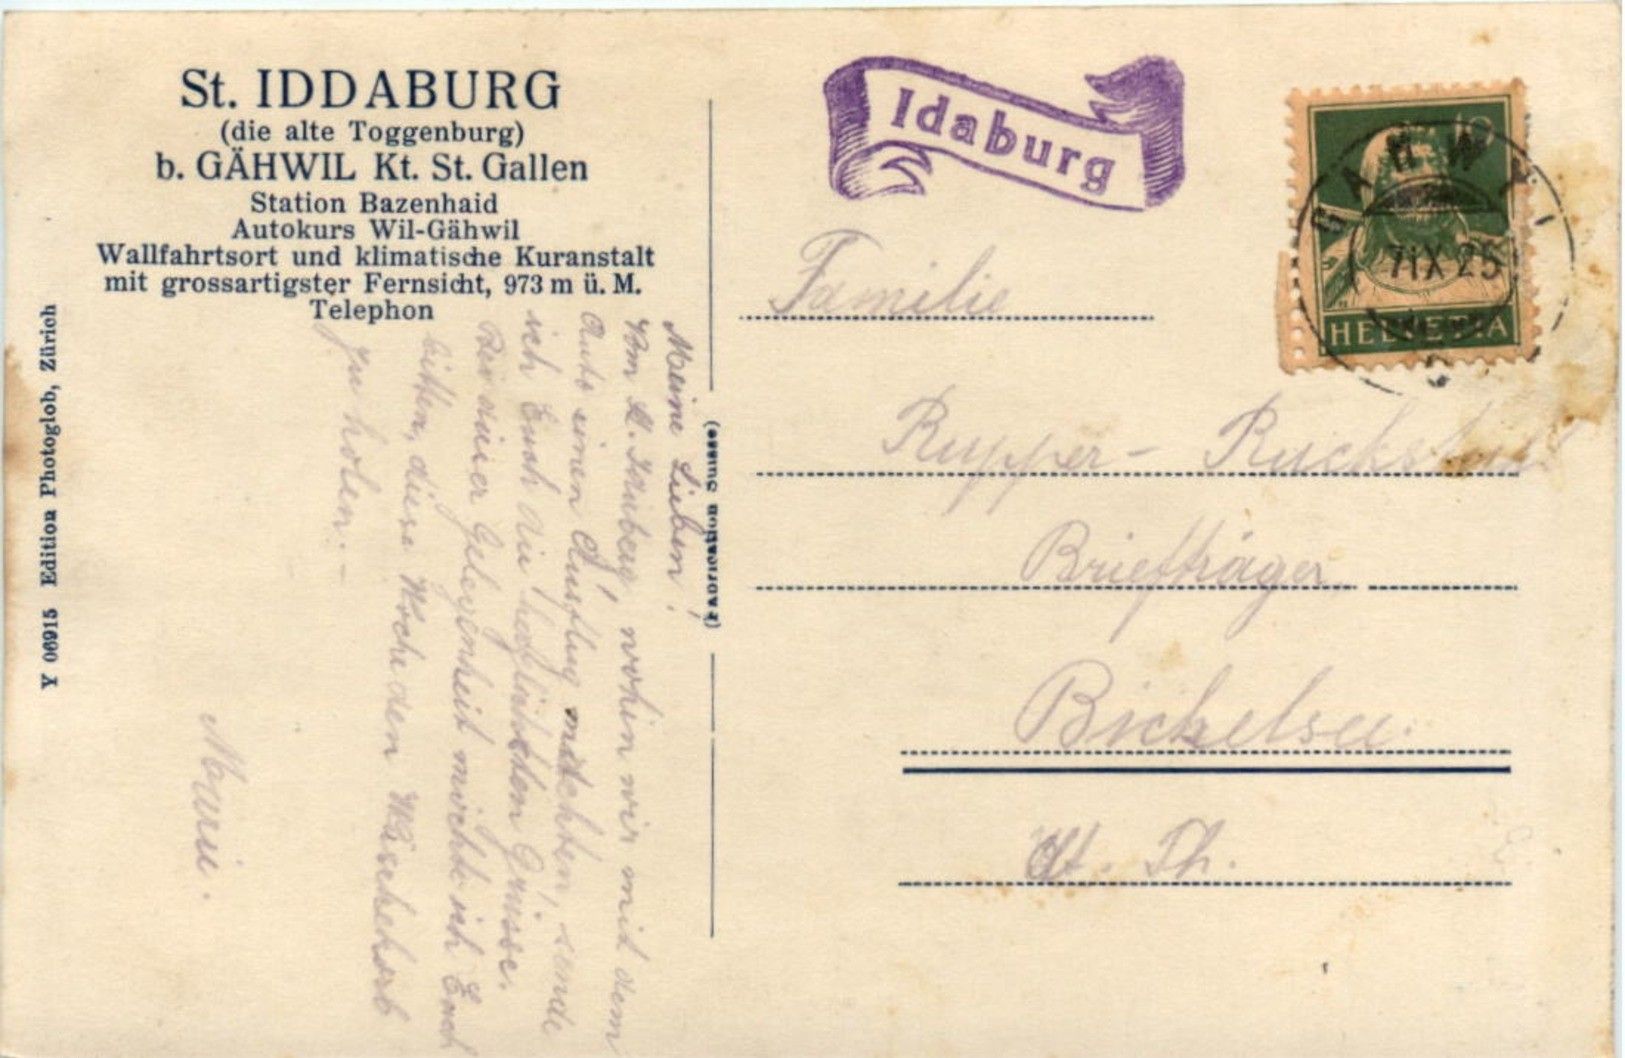 St. IDDABURG
(die alte Toggenburg)
b. GÄHWIL Kt. St. Gallen
Station Bazenhaid
Autokurs Wil-Gähwil
Wallfahrtsort und klimatische Kuranstalt
mit grossartigster Fernsicht, 973 m ü. M.
Telephon
Y 06915 Edition Photoglob, Zürich
Meine Lieben!
Vom St. Idaberg, wohin wir mit dem
Auto einen Ausflug machten, sende
ich Euch die herzlichsten Grüsse.
Bei dieser Gelegenheit möchte ich Euch
bitten, diese Woche den Wäschekorb
zu holen. –
Marie.
(Fabrication Suisse)
Idaburg
10
HELVETIA
GÄHWIL
7 IX 25
Familie
Rupper - Ruckstuhl
Briefträger,
Bichelsee.
Kt. Th.